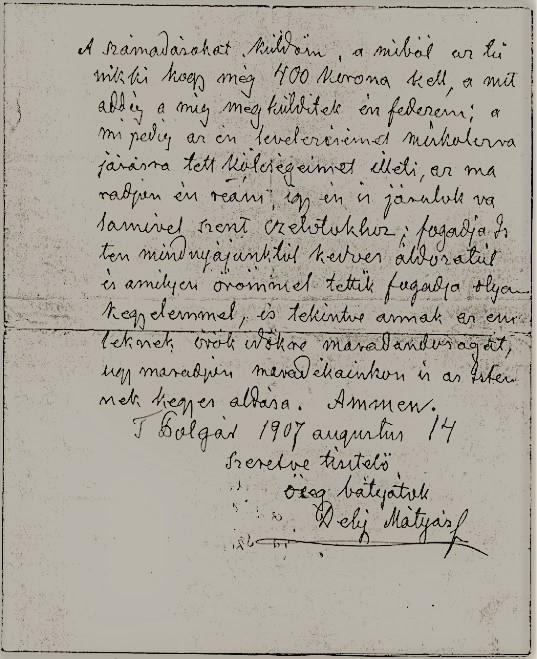 A számadásokat küldöm, a miből az tü
nik ki hogy még 400 korona kell, a mit
addig a mig megkülditek én fedezem; a
mi pedig az én levelezésemet miskolczra
járásra tett költségeimet illeti, az ma
radjon én reám, így én is járulok va
lamivel szent czélotokhoz; fogadja Is
ten mindnyájunktól kedves áldozatúl
és amilyen örömmel tettük fogadja olyan
kegyelemmel, és tekintve annak az em
léknek örök időkre maradandóságát,
úgy maradjon maradékainkon is az Iste
nek kegyes áldása. Ammen.
T Dolgár 1907 augustus 14
Szeretve tisztelő
öreg bátyátok
Dely Mátyás